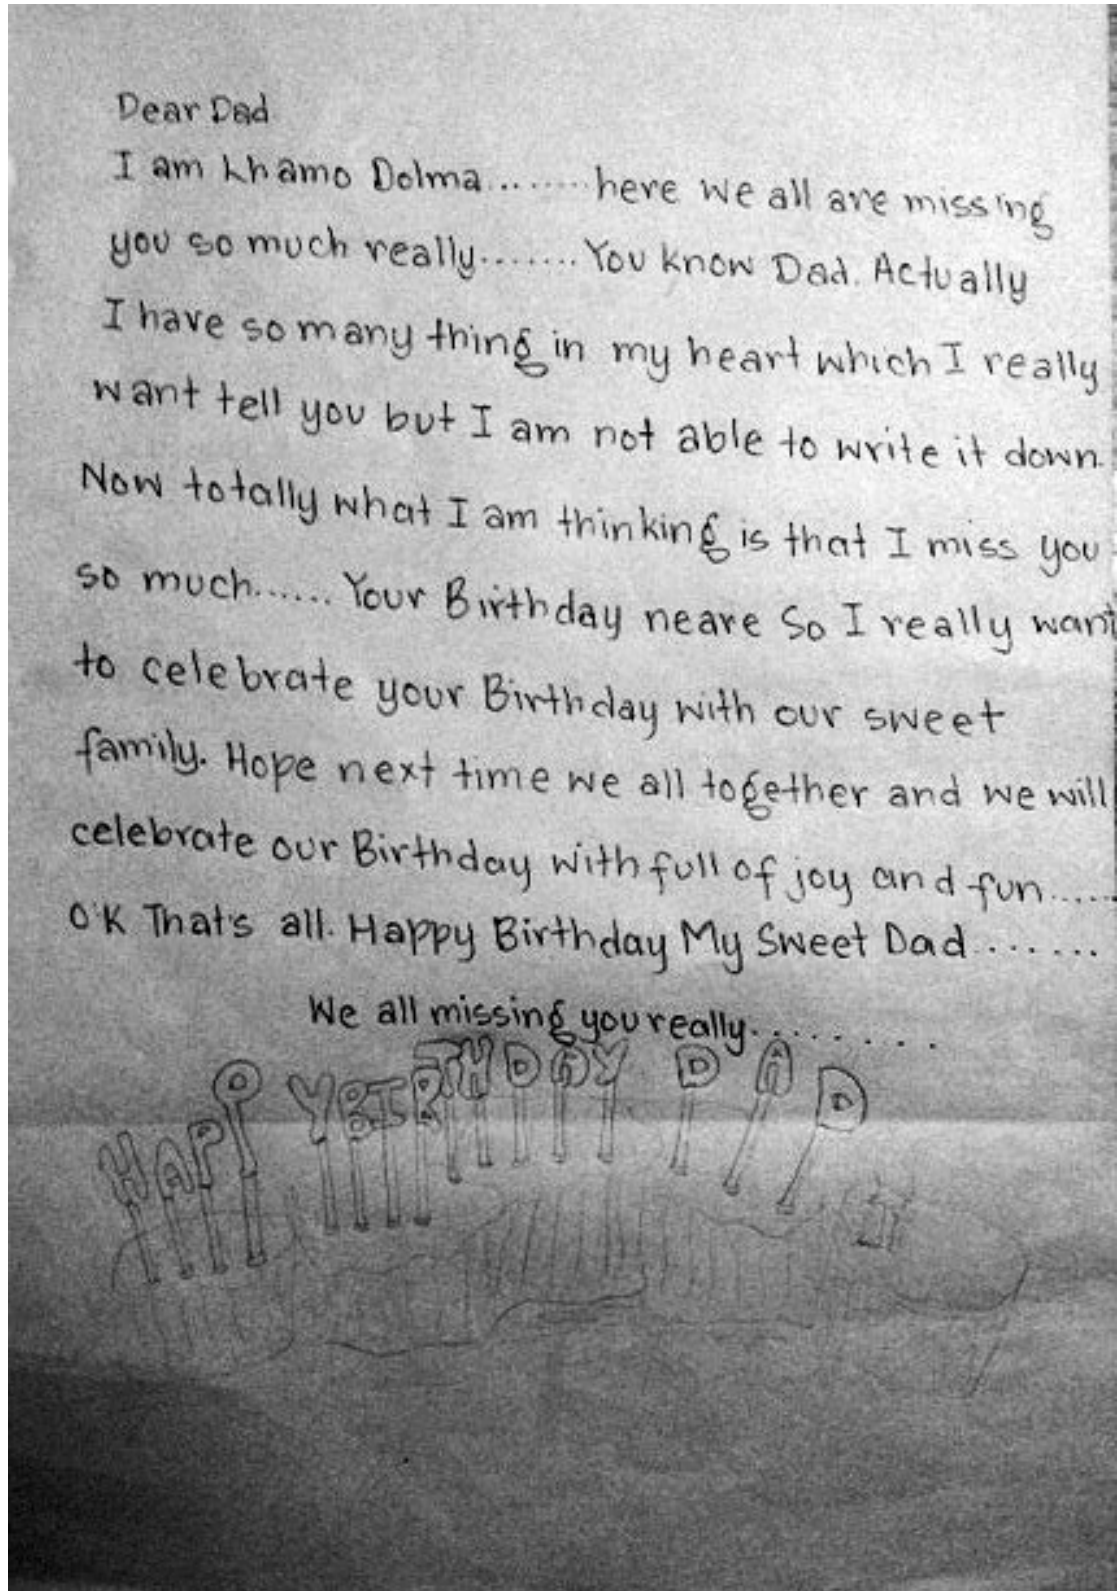 Dear Dad
I am Lhamo Dolma........ here we all are missing
you so much really....... You know Dad. Actually
I have so many thing in my heart which I really
want tell you but I am not able to write it down.
Now totally what I am thinking is that I miss you
so much...... Your Birthday neare So I really want
to celebrate your Birthday with our sweet
family. Hope next time we all together and we will
celebrate our Birthday with full of joy and fun.....
O'K That's all. Happy Birthday My Sweet Dad.......
We all missing you really........
HAPPY BIRTHDAY DAD